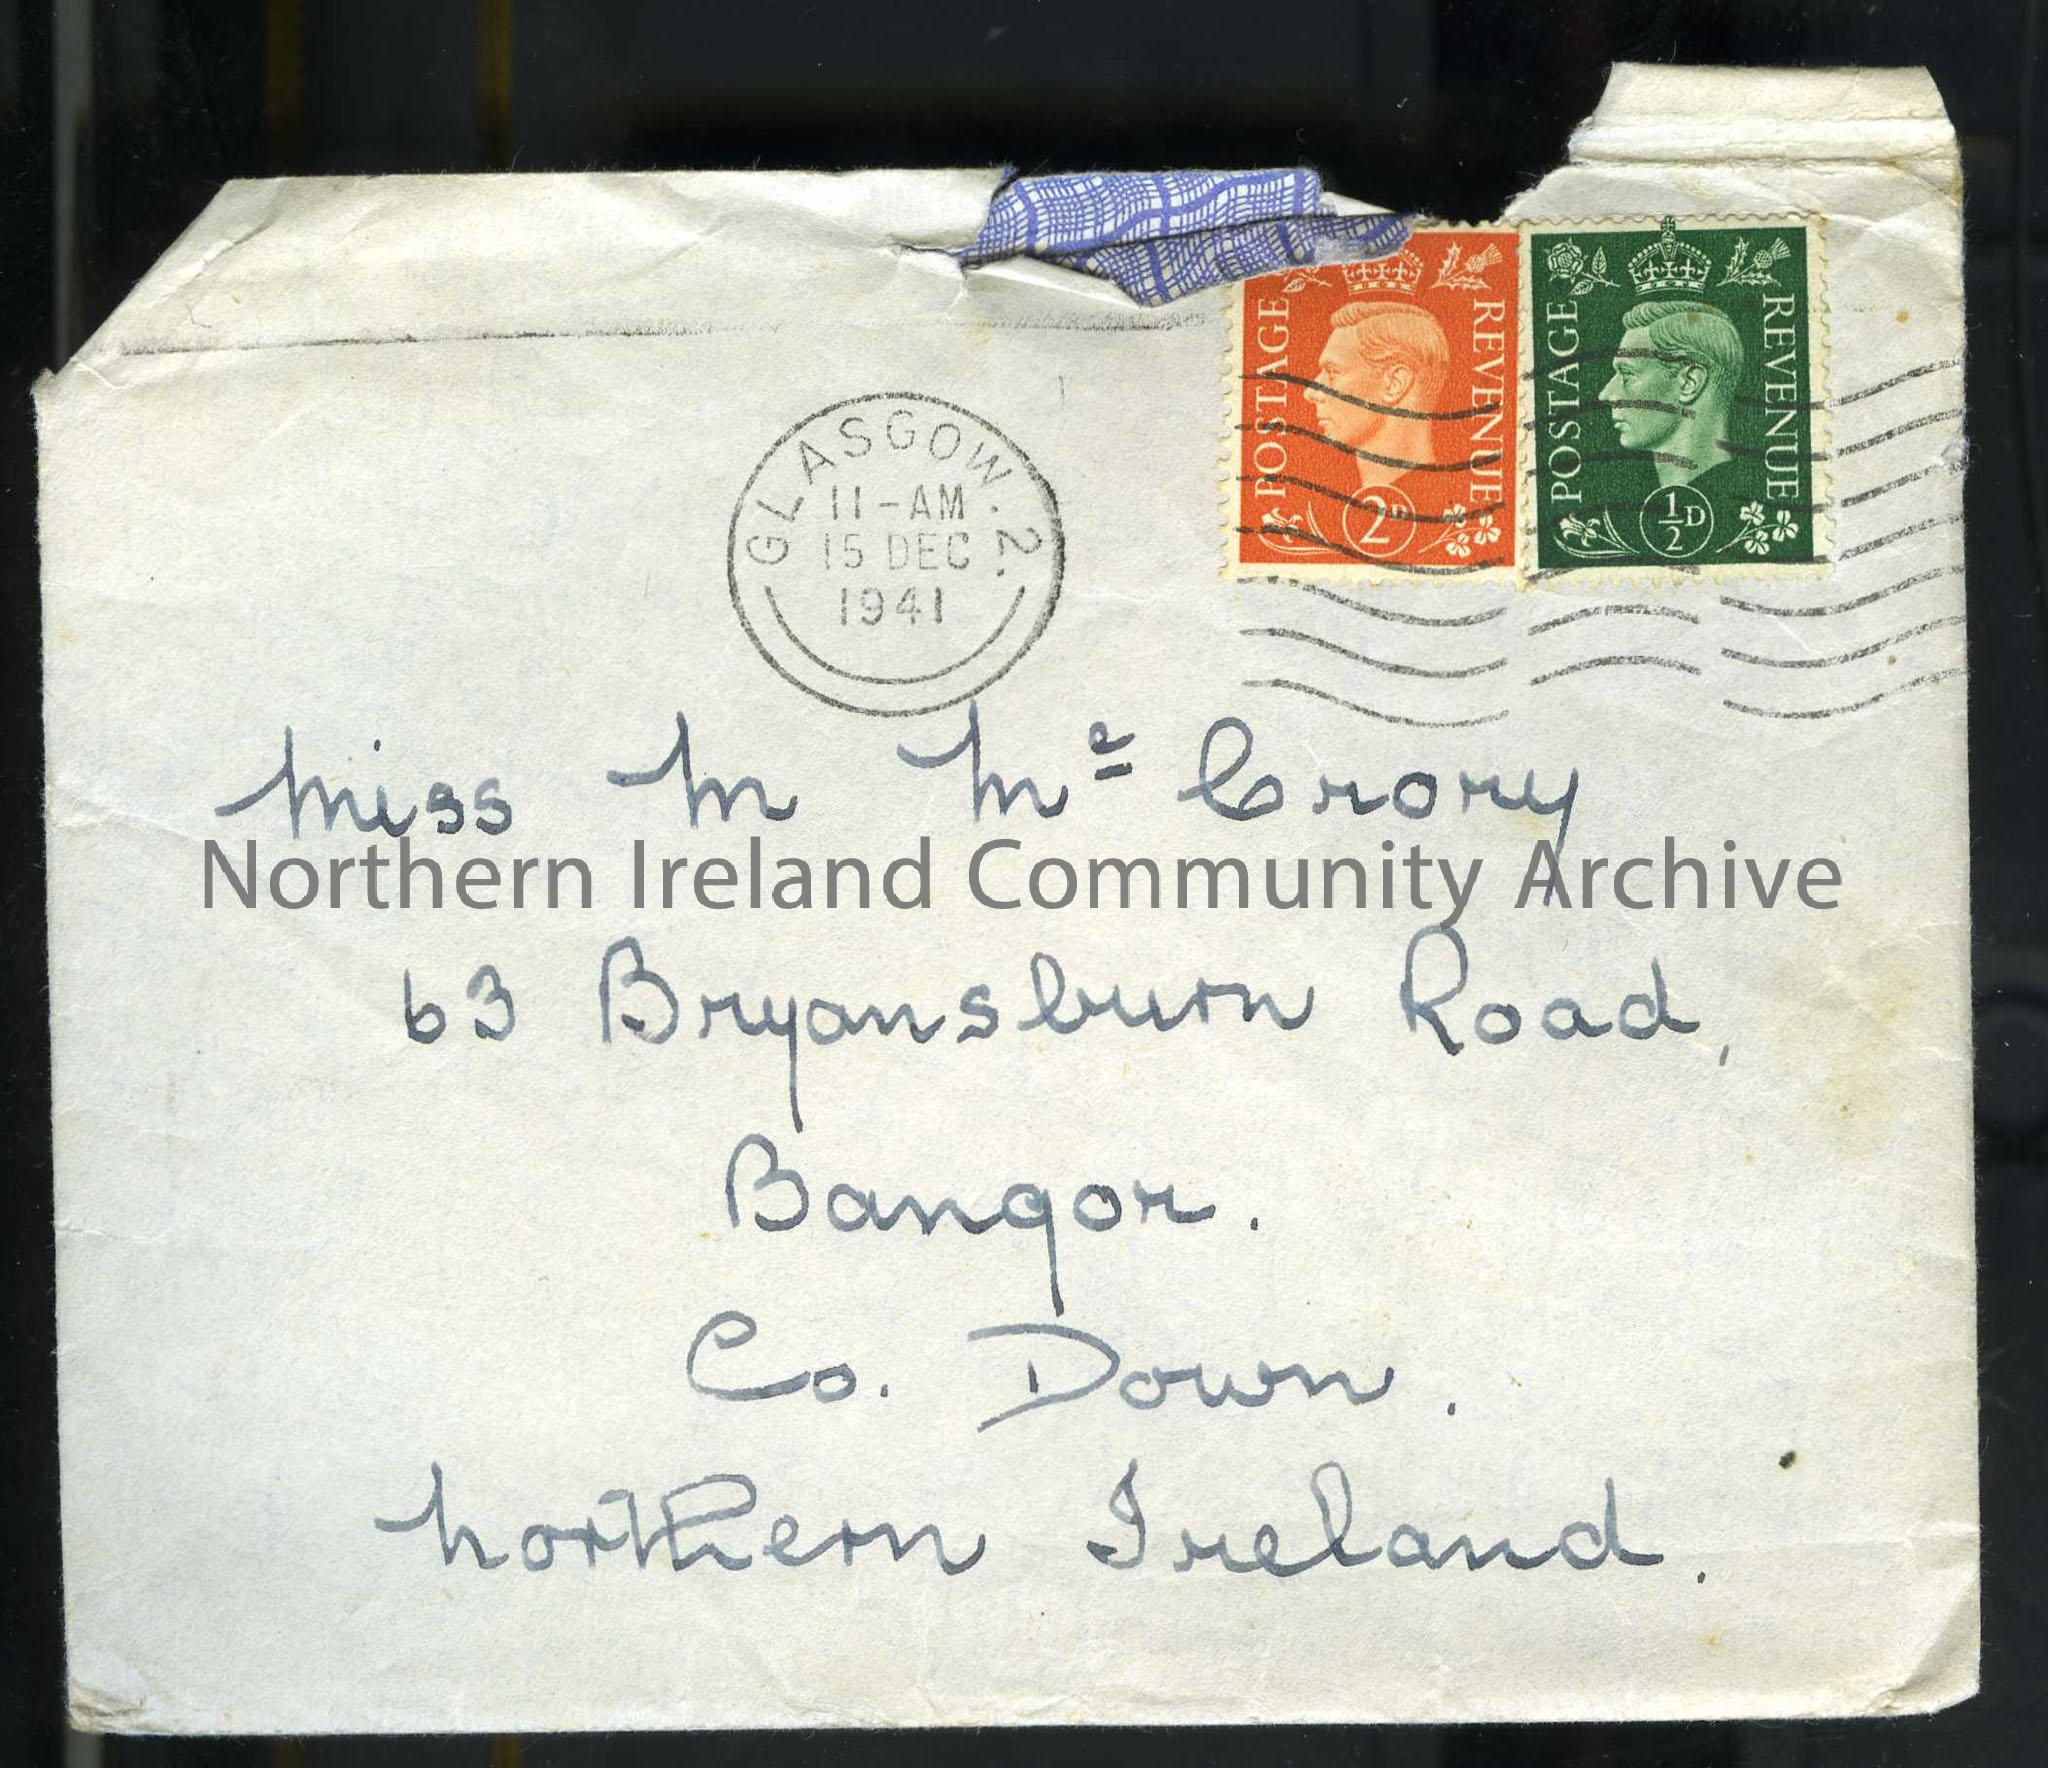 GLASGOW. 2.
11-AM
15 DEC
1941
POSTAGE REVENUE
2D
POSTAGE REVENUE
½D
Miss M Mc Crory
Northern Ireland Community Archive
63 Bryansburn Road,
Bangor.
Co. Down.
Northern Ireland.